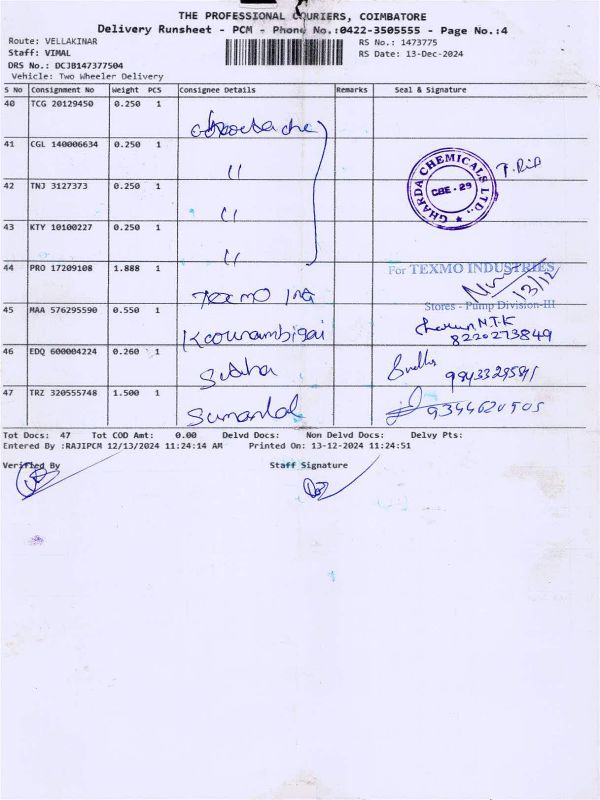 THE PROFESSIONAL COURIERS, COIMBATORE
Delivery Runsheet - PCM - Phone No.:0422-3505555 - Page No.:4
Route: VELLAKINAR
RS No.: 1473775
Staff: VIMAL
RS Date: 13-Dec-2024
DRS No.: DCJB147377504
Vehicle: Two Wheeler Delivery
S No Consignment No Weight PCS Consignee Details Remarks Seal & Signature
40 TCG 20129450 0.250 1
41 CGL 140006634 0.250 1 "
GHARDA CHEMICALS LTD.,
CBE - 29
42 TNJ 3127373 0.250 1 "
43 KTY 10100227 0.250 1 "
44 PRO 17209108 1.888 1 Texmo Ind
For TEXMO INDUSTRIES
13/12
Stores - Pump Division-III
45 MAA 576295590 0.550 1 8220273849
46 EDQ 600004224 0.260 1
47 TRZ 320555748 1.500 1
Tot Docs: 47 Tot COD Amt: 0.00 Delvd Docs: Non Delvd Docs: Delvy Pts:
Entered By :RAJIPCM 12/13/2024 11:24:14 AM Printed On: 13-12-2024 11:24:51
Verified By Staff Signature